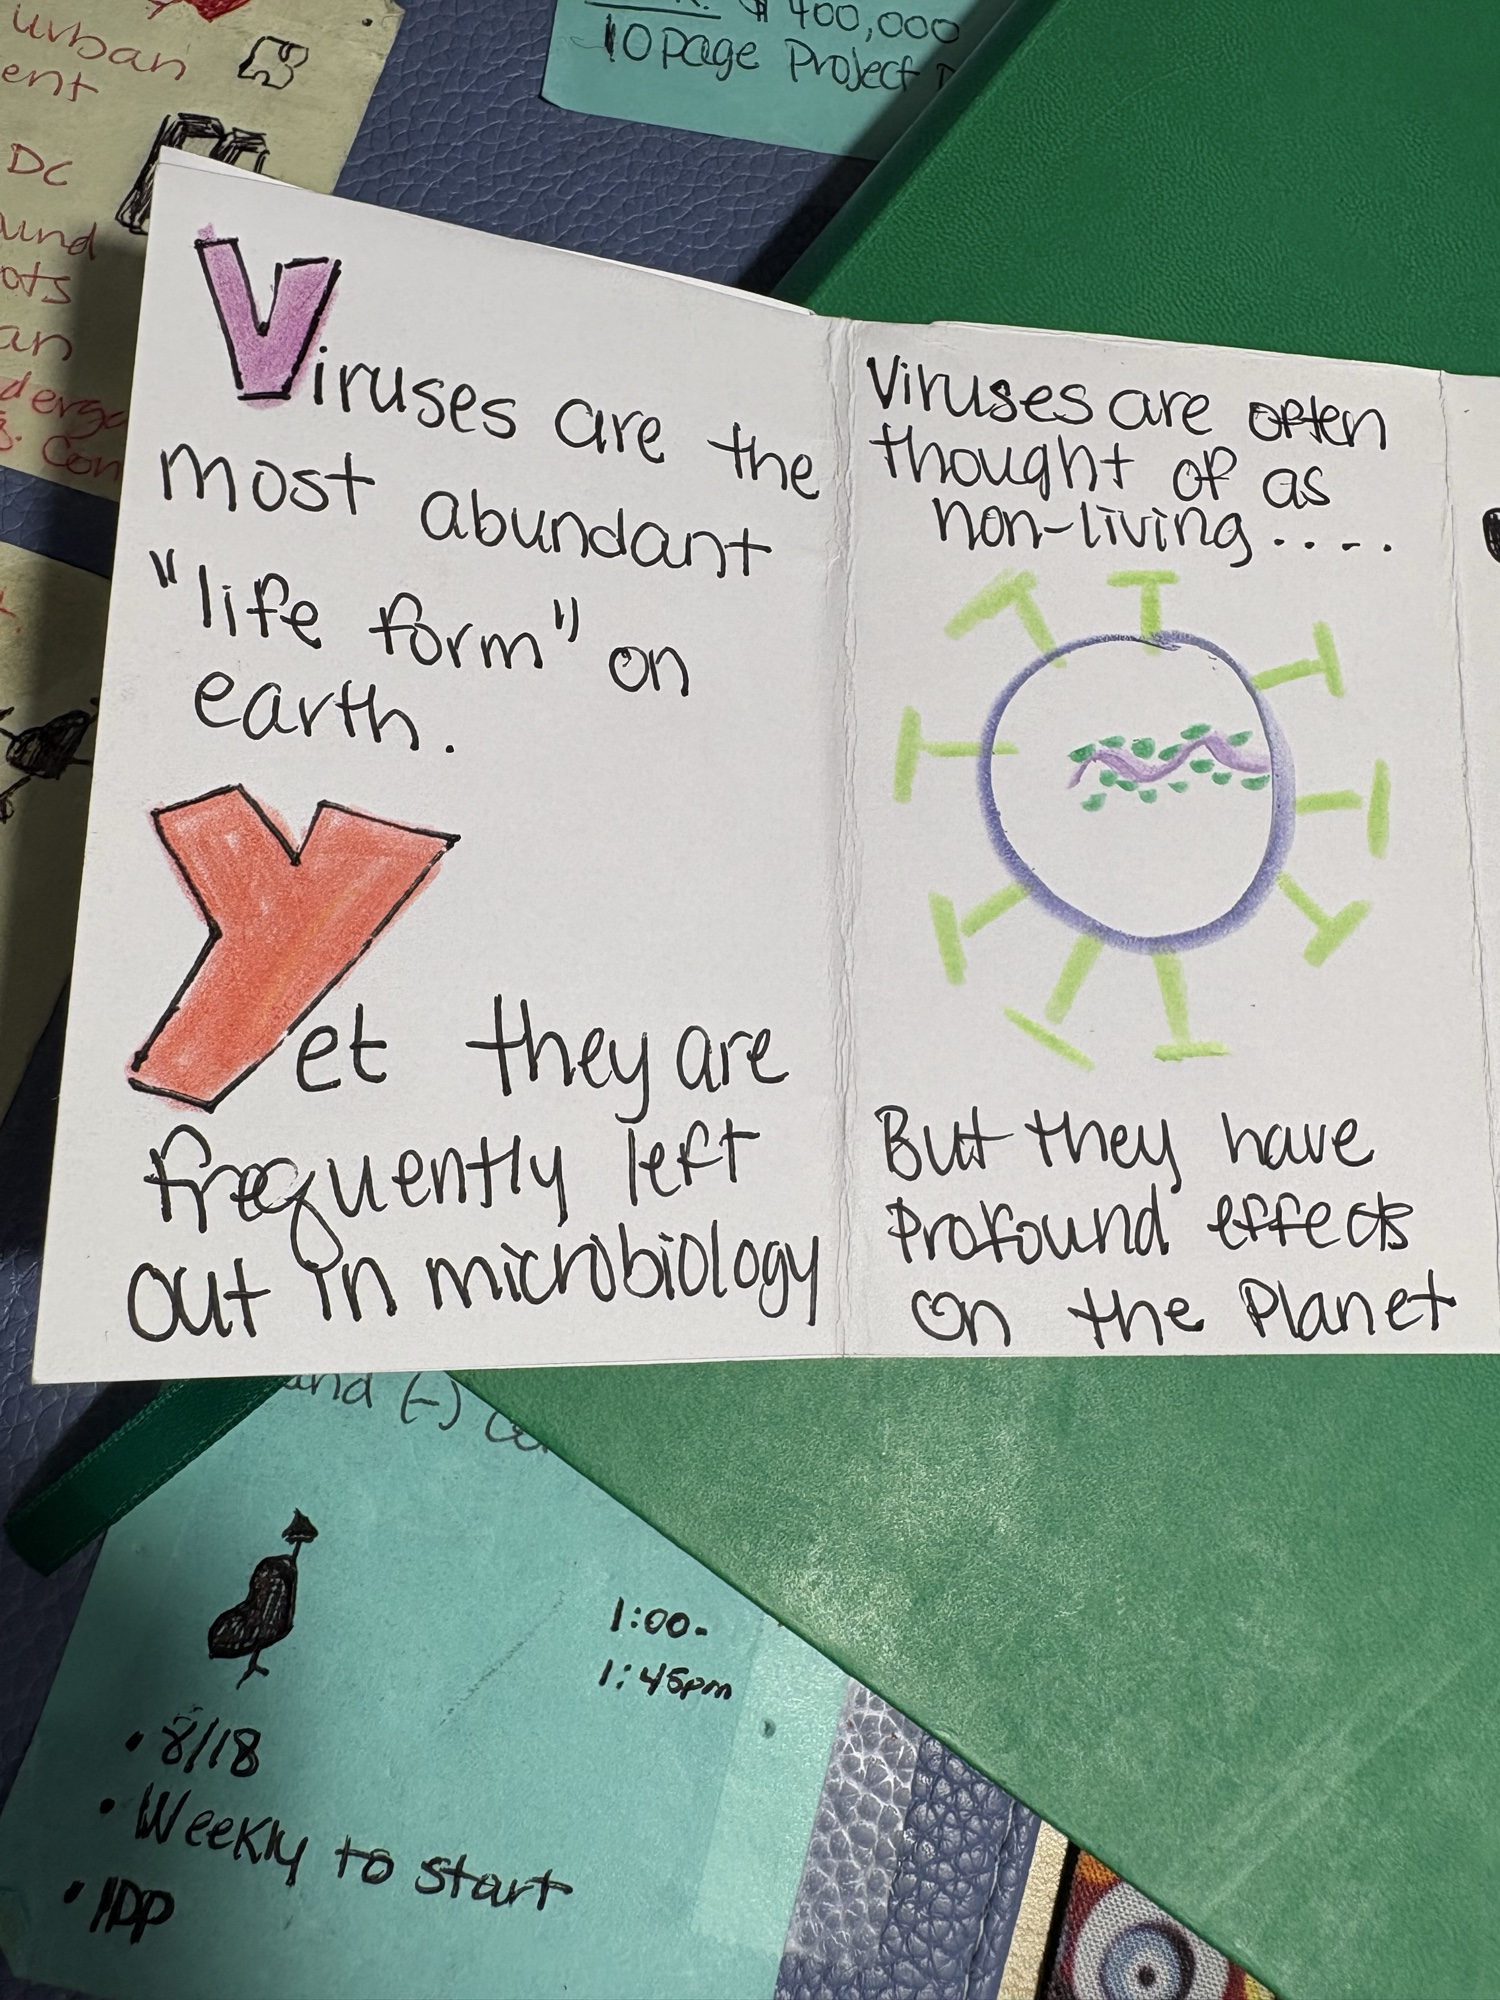 urban
ent
DC
und
ots
an
$400,000
10 page Project
Viruses are the
most abundant
"life form" on
earth.
Yet they are
frequently left
out in microbiology
Viruses are often
thought of as
non-living....
But they have
Profound effects
on the Planet
and (-)
1:00-
1:45pm
• 8/18
• Weekly to start
• IDP